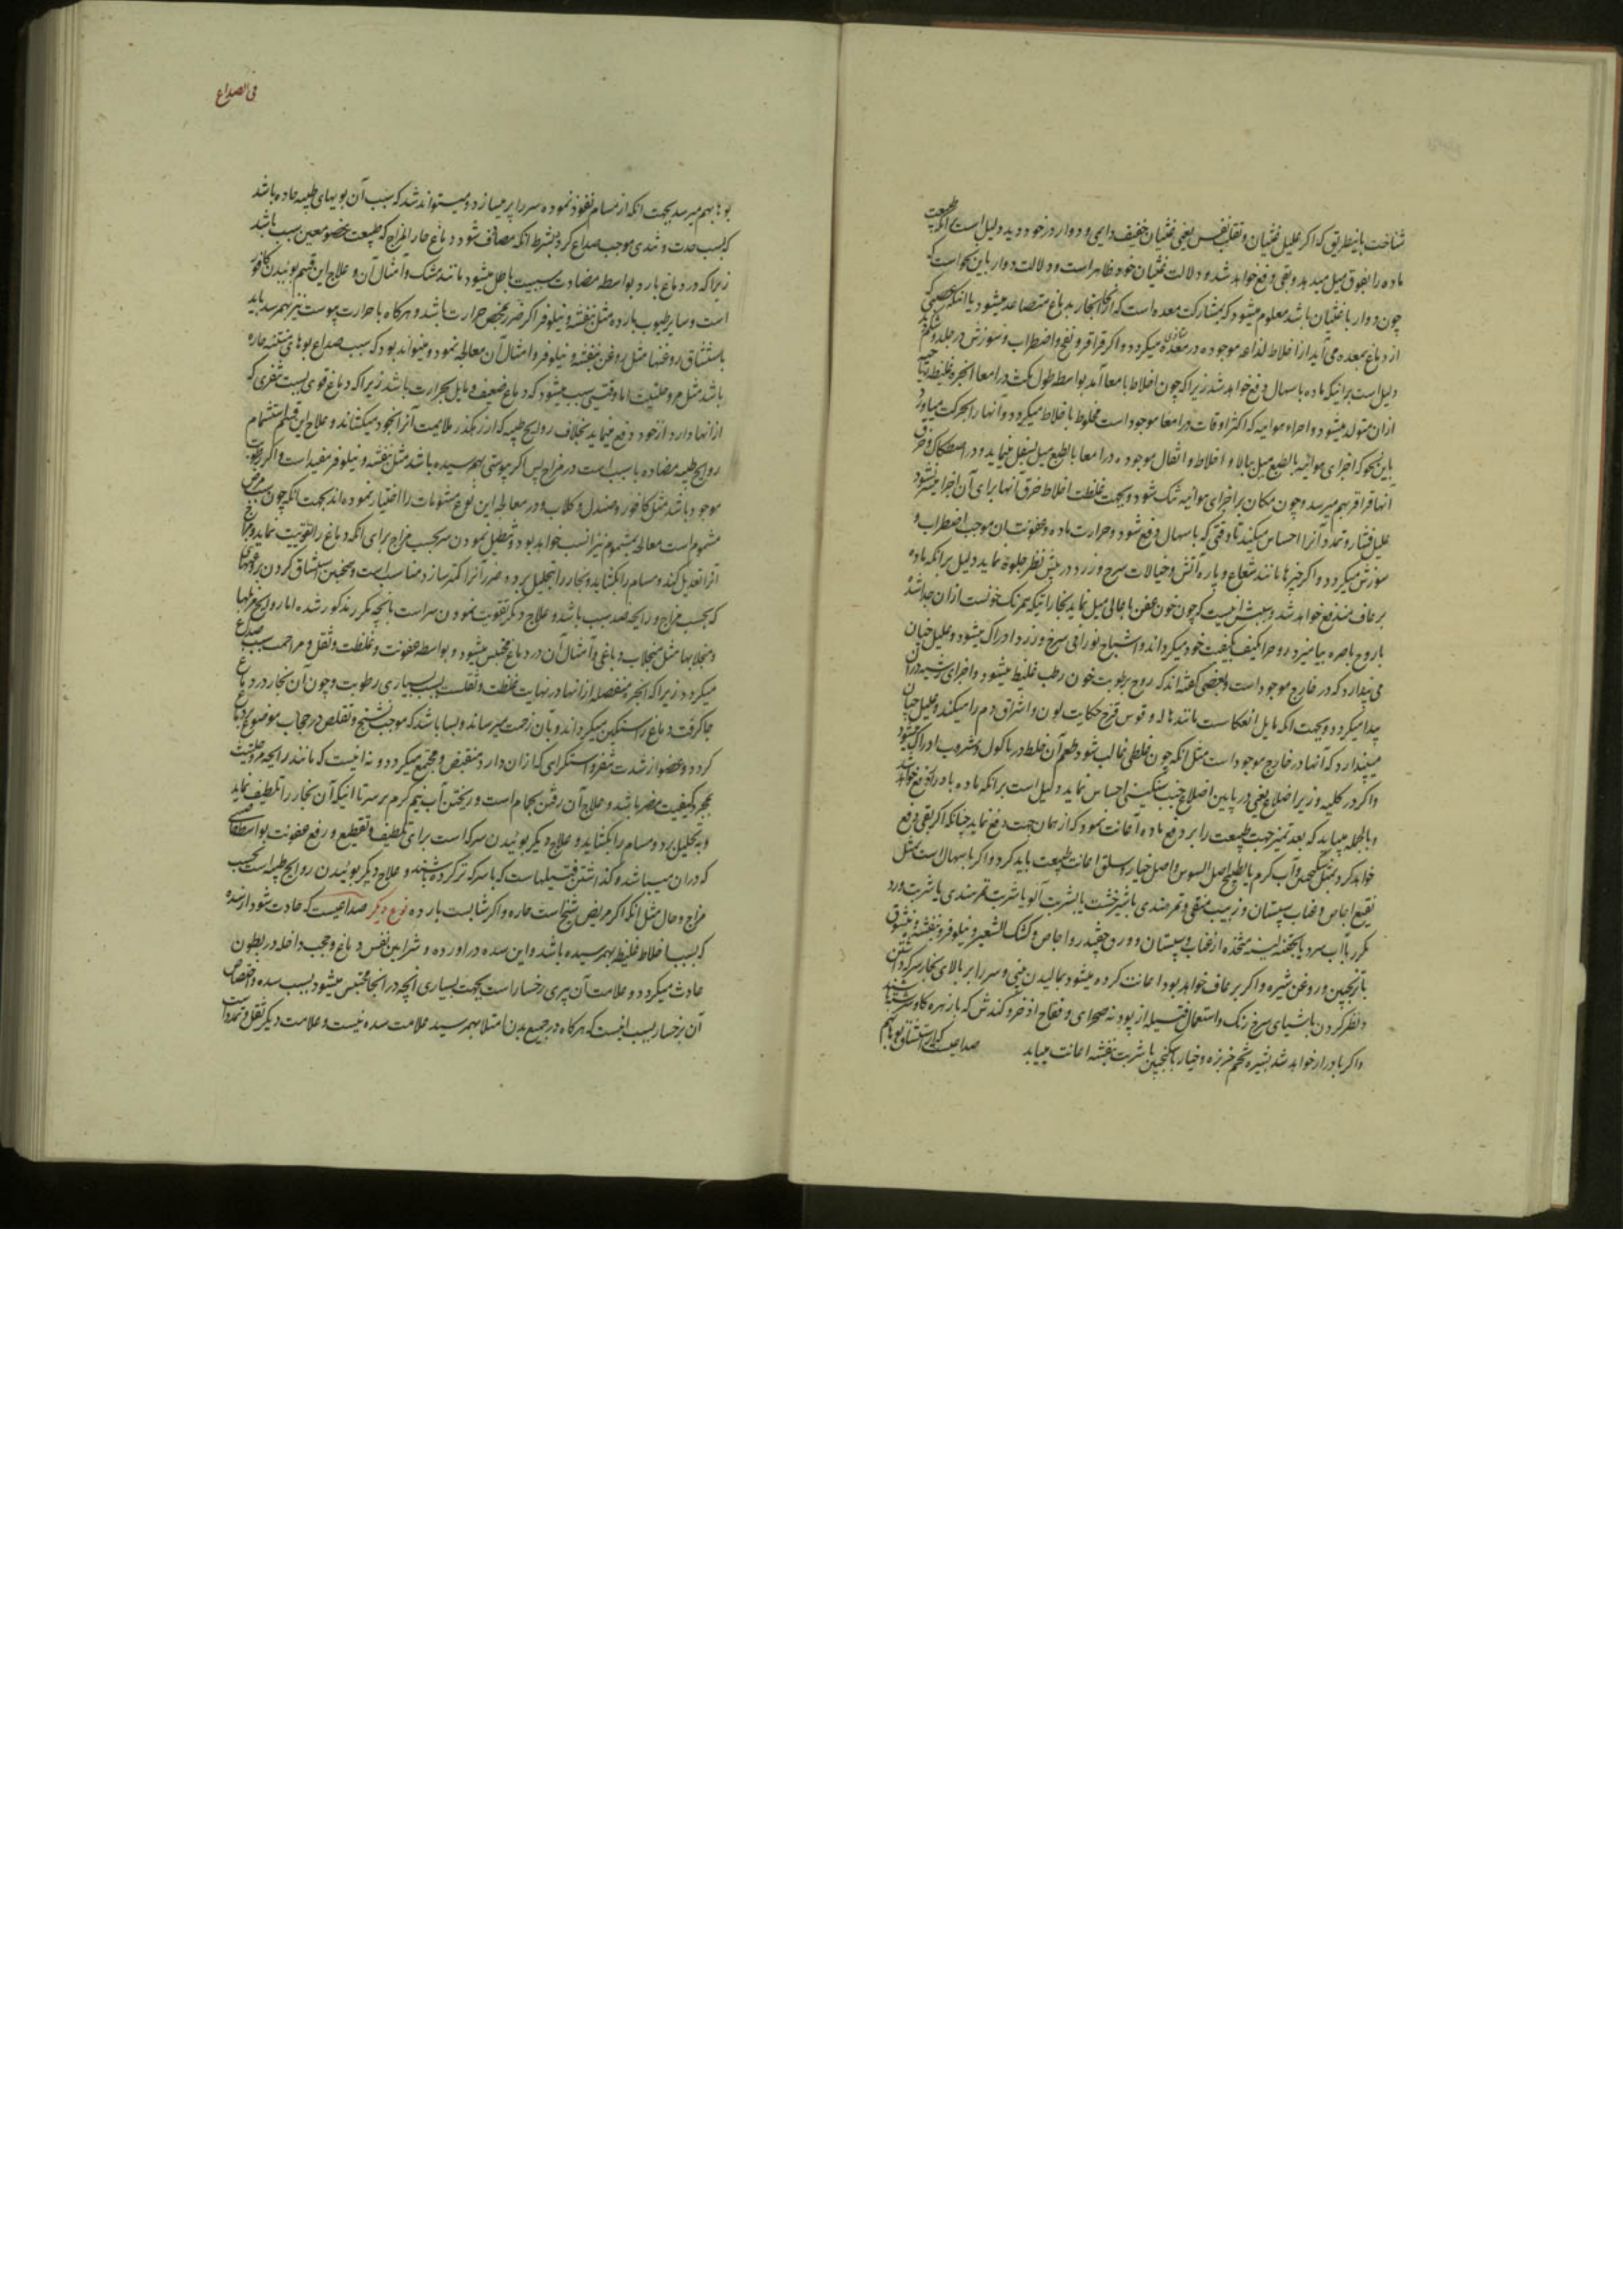 شناخت باینطریق که اگر علیل غثیان و تقلب نفس یعنی غثیان خفیف دایمی و دوار در خود دید دلیل است برآنکه طبیعت
ماده را بفوق میل میدهد و بقی دفع خواهد شد و دلالت غثیان خود ظاهر است و دلالت دوار باین نحو است که
چون دوار با غثیان باشد معلوم میشود که بمشارکت معده است که ازانجا بخار بدماغ متصاعد میشود یا آنکه
از دماغ بمعده می آید از اخلاط لذاعه موجوده در معده میکردد و اکر قراقر و نفخ و اضطراب و سوزش در جلد و شکم
دلیل است برآنیکه ماده باسهال دفع خواهد شد زیراکه چون اخلاط بامعا آمد بواسطه طول مکث در امعا ابخره غلیظه
ازان متولد میشود و اجزاء هوائیه که اکثر اوقات در امعا موجود است مخلوط باخلاط میکردد و آنها را بحرکت میاورد
باین نحو که اجزای هوائیه بالطبع میل ببالا و اخلاط و اثقال موجوده در امعا بالطبع میل بسفل مینماید و در اصطکاک و خرق
انها قراقر بهم میرسد و چون مکان بر اجزای هوائیه تنک شود و بجهت غلظت اخلاط خرق آنها برای آن اجزا میسر نشود
علیل فشار و تمدد آنرا احساس میکند تا وقتی که باسهال دفع شود و حرارت ماده و عفونت آن موجب اضطراب و
سوزش میکردد و اکر چیزها مانند شعاع و پاره آتش و خیالات سرخ و زرد در پیش نظر جلوه نماید دلیل برآنکه ماده
برعاف مندفع خواهد شد و سببش اینست که چون خون عفن باعالی میل نماید بخارانیکه همرنک خونست ازان جدا شده
با روح باصره بیامیزد و روح را کیف بکیفیت خود میکرداند و اشباح نورانی سرخ و زرد ادراک میشود و علیل چنان
می پندارد که در خارج موجود است و بعضی گفته اند که روح برطوبت خون رطب غلیظ میشود و اجزای
پیدا میکردد و بجهت آنکه مایل انعکاست مانند هاله و قوس قزح حکایت لون و اشراق دم را میکند و علیل چنان
میپندارد که آنها در خارج موجود است مثل آنکه چون خلطی غالب شود طعم آن خلط در ماکول و مشروب ادراک میشود
واکر در کلیه و زیر اضلاع یعنی در پایین اضلاع جنب سنکینی احساس نماید دلیل است برآنکه ماده بادرار دفع خواهد شد
وبالجمله میباید که بعد تمیز جهت طبیعت را بر دفع ماده اعانت نمود که از همان جهت دفع نماید چنانکه اکر بقی دفع
خواهد کرد بمثل سکنجبین و آب کرم یا بطبیخ اصل السوس و اصل خیار و سلق اعانت طبیعت باید کرد و اکر باسهالست بمثل
نقیع اجاص و عناب و سپستان و زبیب منقی و تمرهندی با شیرخشت یا بشربت آلو یا شربت تمرهندی یا شربت ورد
مکرر با آب سرد یا بحقنه لینه متخذه از عناب و سپستان و ورق چقندر و اجاص و کشک الشعیر و نیلوفر و بنفشه
باترنجبین و روغن شیره و اکر برعاف خواهد بود اعانت کرده میشود بمالیدن بینی و سر را بر بالای بخار سرکه داشتن
و نظر کردن باشیای سرخ رنک و استعمال فتیله از پودنه صحرای و فقاح اذخر و کندش که با زهره کاو سرشته باشند
واکر بادرار خواهد شد بشیره تخم خربزه و خیار با سکنجبین یا شربت بنفشه اعانت میباید صداعیست که از استنشاق بوها بهم
فی الصداع
بوها بهم میرسد بجهت انکه از مسام نفوذ نموده سر را پر میسازد و میتواند شد که سبب آن بویهای طیبه حاده باشد
که بسبب حدت و تندی موجب صداع کردد بشرط انکه مصادف شود دماغ حار المزاج که طبیعت بخصوص معین سبب باشد
زیراکه در دماغ بارد بواسطه مضادت سببیت باطل میشود مانند مشک و امثال آن و علاج این قسم بوئیدن کافور
است و سایر طیوب بارده مثل بنفشه و نیلوفر اکر ضرر بمحض حرارت باشد و هرکاه با حرارت یبوست نیز بهم رسد باید
باستنشاق روغنها مثل روغن بنفشه و نیلوفر و امثال آن معالجه نمود و میتواند بود که سبب صداع بوهای منتنه حاره
باشد مثل مر و حلتیت اما وقتی سبب میشود که دماغ ضعیف و مایل بحرارت باشد زیراکه دماغ قوی بسبب تنفری که
ازانها دارد از خود دفع مینماید بخلاف روایح طیبه که از رهکذر ملایمت آنرا بخود میکشاند و علاج این قسم استشمام
روایح طیبه مضاده با سبب است در مزاج پس اکر یبوستی بهم رسیده باشد مثل بنفشه و نیلوفر مفید است و اکر رطوبت
موجود باشد مثل کافور و صندل و کلاب و در معالجه این نوع مشمومات را اختیار نموده اند بجهت انکه چون سبب مرض
مشموم است معالجه بمشموم نیز انسب خواهد بود و تنطیل نمودن سر بحسب مزاج برای انکه دماغ را تقویت نماید و مزاج
آنرا تعدیل کند و مسام را بکشاید و بخار را بتحلیل برده ضرر آنرا کمتر سازد مناسب است و همچنین استنشاق کردن بروغنها
که بحسب مزاج و رایحه ضد سبب باشد و علاج دیکر تقویت نمودن سر است بآنچه مکرر مذکور شده اما روایح مزبلها
و منجلابها مثل منجلاب دباغی و امثال آن در دماغ محتبس میشود و بواسطه عفونت و غلظت و ثقل و مزاحمت سبب صداع
میکردد زیراکه ابخره منفصله ازانها در نهایت غلظت و ثقلست بسبب بسیاری رطوبت و چون آن بخار در دماغ
جا کرفت دماغ را سنکین میکرداند و بآن زحمت میرساند و بسا باشد که موجب تشنج و تقلص در حجاب موضوع بر دماغ
کردد و عضو از شدت تنفر و استکراه که ازان دارد منقبض و مجتمع میکردد و نه اینست که مانند رایحه مر و حلتیت
بمجرد کیفیت مضر باشد و علاج آن رفتن بحمام است و ریختن آب نیم کرم بر سر تا انیکه آن بخار را تلطیف نماید
و بتحلیل برد و مسام را بکشاید و علاج دیکر بوئیدن سرکه است برای تلطیف و تقطیع و رفع عفونت بواسطه
که دران میباشد و کذاشتن فتیلهاست که با سرکه تر کرده باشند و علاج دیکر بوئیدن روایح طیبه است بحسب
مزاج و حال مثل آنکه اکر مریض شیخ است حاره و اکر شابست بارده نوع دیکر صداعیست که حادث شود از سده
که بسبب اخلاط غلیظ بهم رسیده باشد و این سده در اورده و شرایین نفس دماغ و حجب داخله در بطون
حادث میکردد و علامت آن پری رخسار است بجهت بسیاری آنچه در انجا محتبس میشود بسبب سده و اختصاص
آن برخسار بسبب اینست که هرکاه در جمیع بدن امتلا بهم رسید علامت سده نیست و علامت دیکر ثقل و تمدد است